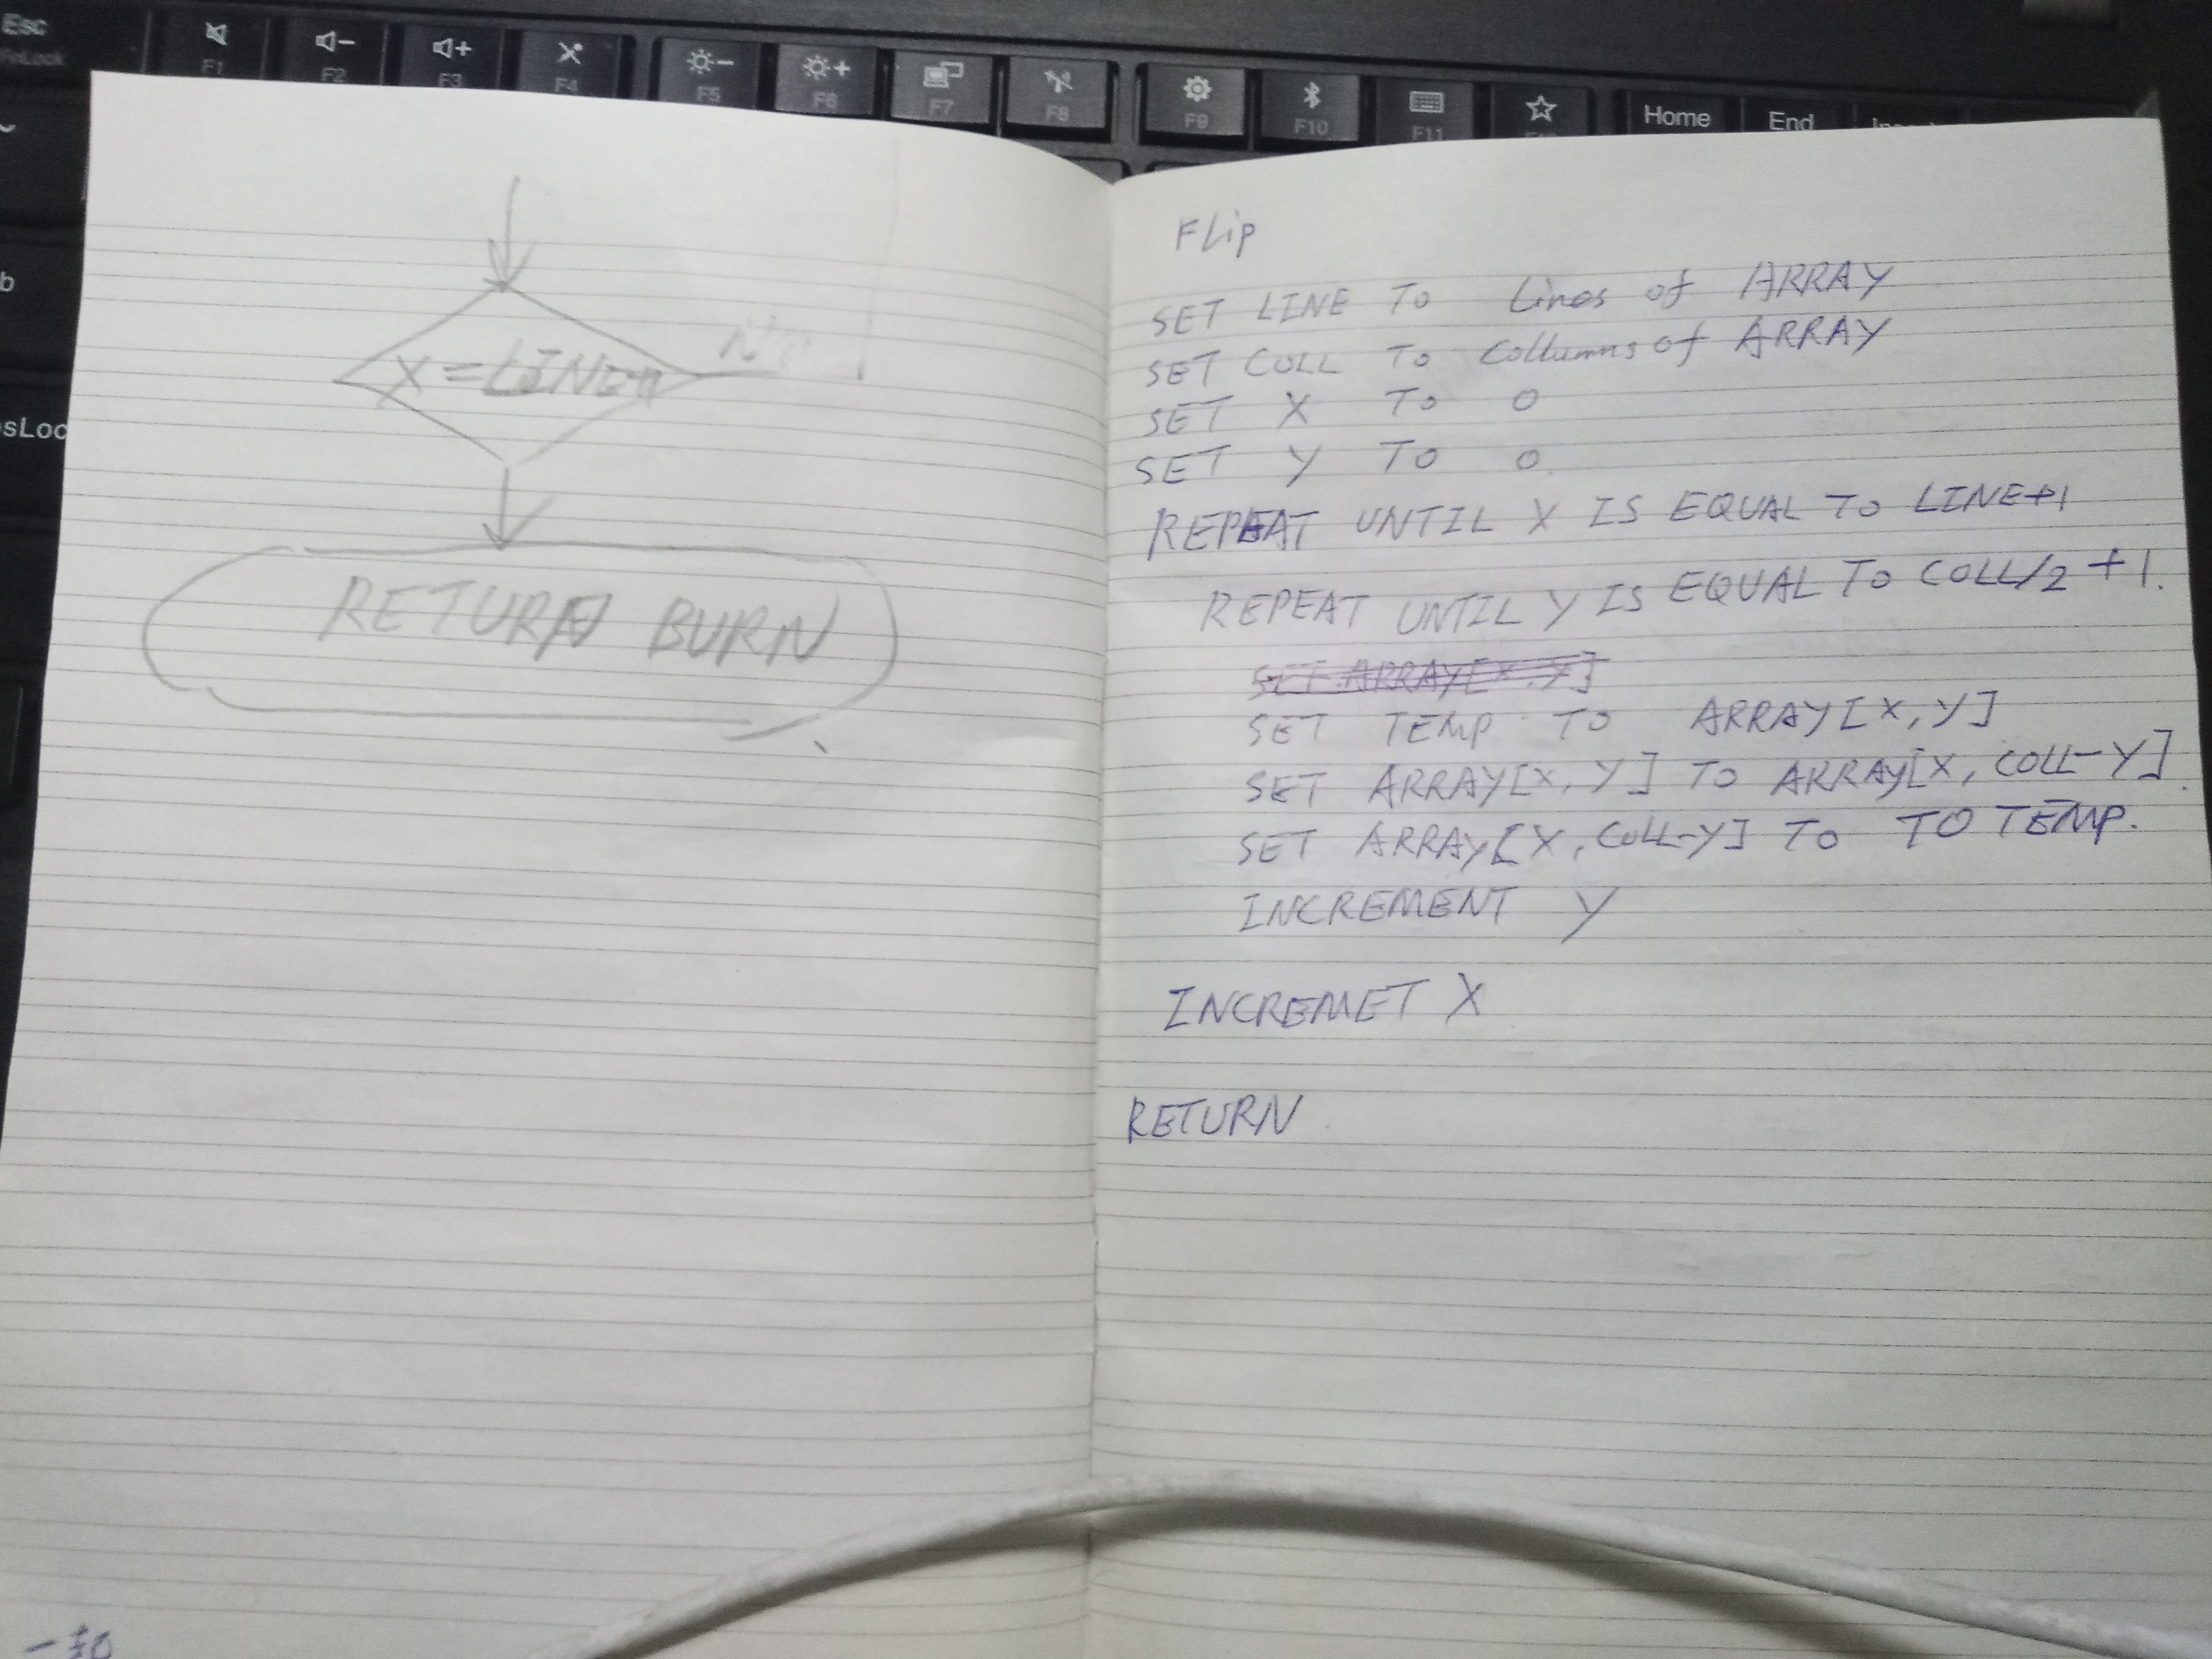 Esc
FnLock
F1
F2
F3
F4
F5
F6
F7
F8
F9
F10
F11
Home
End
X=LINE+1
No
RETURN BURN
一起
FLip
SET LINE TO Lines of ARRAY
SET COLL TO Collumns of ARRAY
SET X TO 0
SET Y TO 0.
REPEAT UNTIL X IS EQUAL TO LINE+1
REPEAT UNTIL Y IS EQUAL TO COLL/2 +1.
SET ARRAY[X,Y]
SET TEMP TO ARRAY[X,Y]
SET ARRAY[X,Y] TO ARRAY[X, COLL-Y].
SET ARRAY[X, COLL-Y] TO TO TEMP.
INCREMENT Y
INCREMET X
RETURN